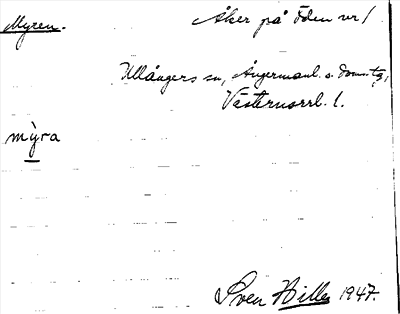 Myren.
Åker på Öden nr 1
Ullångers sn, Ångermanl. s. domstg,
Västernorrl. l.
mỳra
Sven Hille 1947.